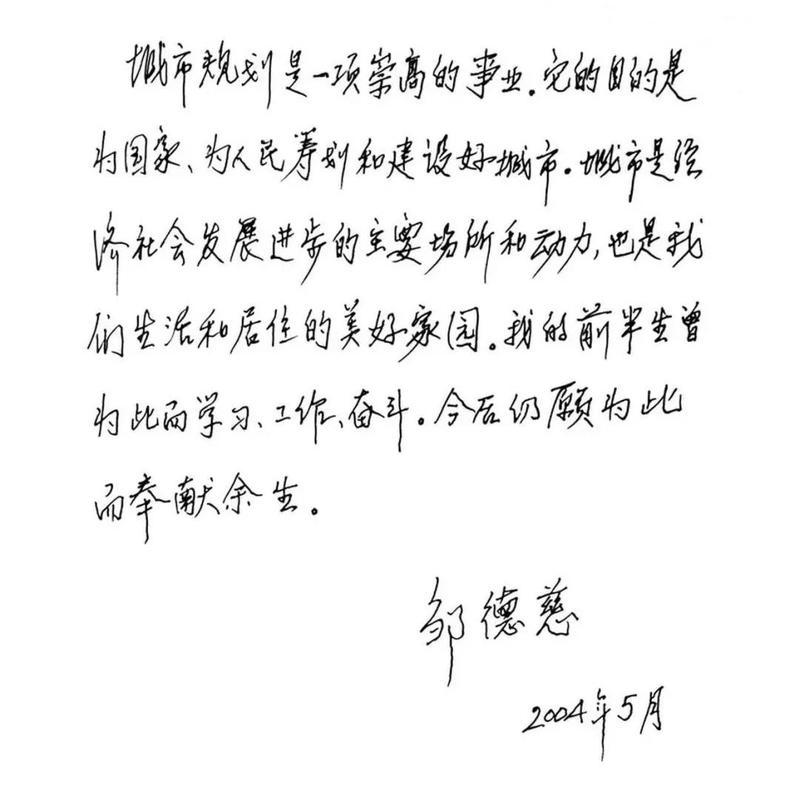 城市规划是一项崇高的事业。它的目的是
为国家、为人民筹划和建设好城市。城市是经
济社会发展进步的主要场所和动力，也是我
们生活和居住的美好家园。我的前半生曾
为此而学习、工作、奋斗。今后仍愿为此
而奉献余生。
邹德慈
2004年5月